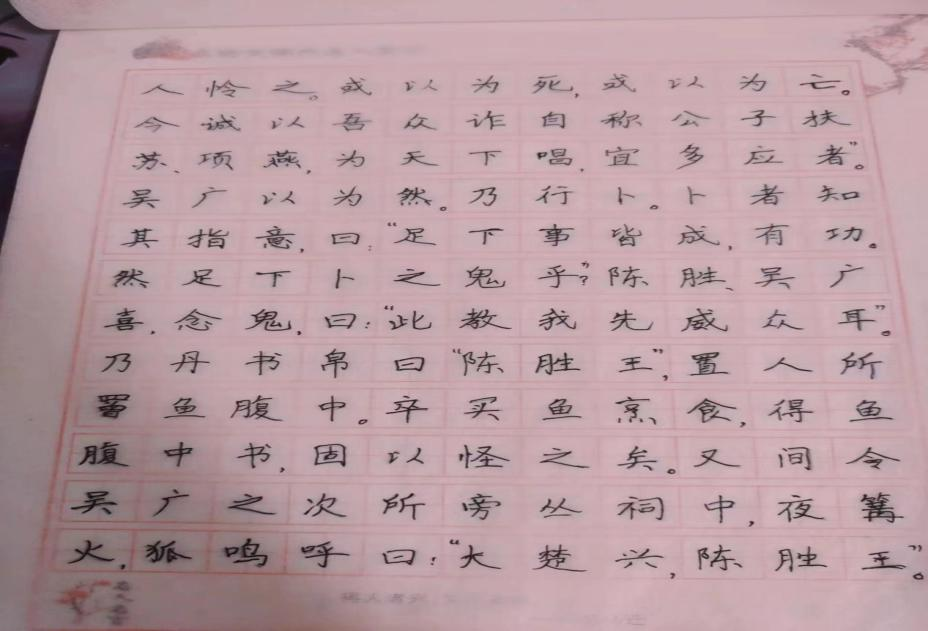 人怜之。或以为死,或以为亡。
今诚以吾众诈自称公子扶
苏、项燕,为天下唱,宜多应者”。
吴广以为然。乃行卜。卜者知
其指意,曰:“足下事皆成,有功。
然足下卜之鬼乎?”陈胜、吴广
喜,念鬼,曰:“此教我先威众耳”。
乃丹书帛曰“陈胜王”,置人所
罾鱼腹中。卒买鱼烹食,得鱼
腹中书,固以怪之矣。又间令
吴广之次所旁丛祠中,夜篝
火,狐鸣呼曰:“大楚兴,陈胜王”。